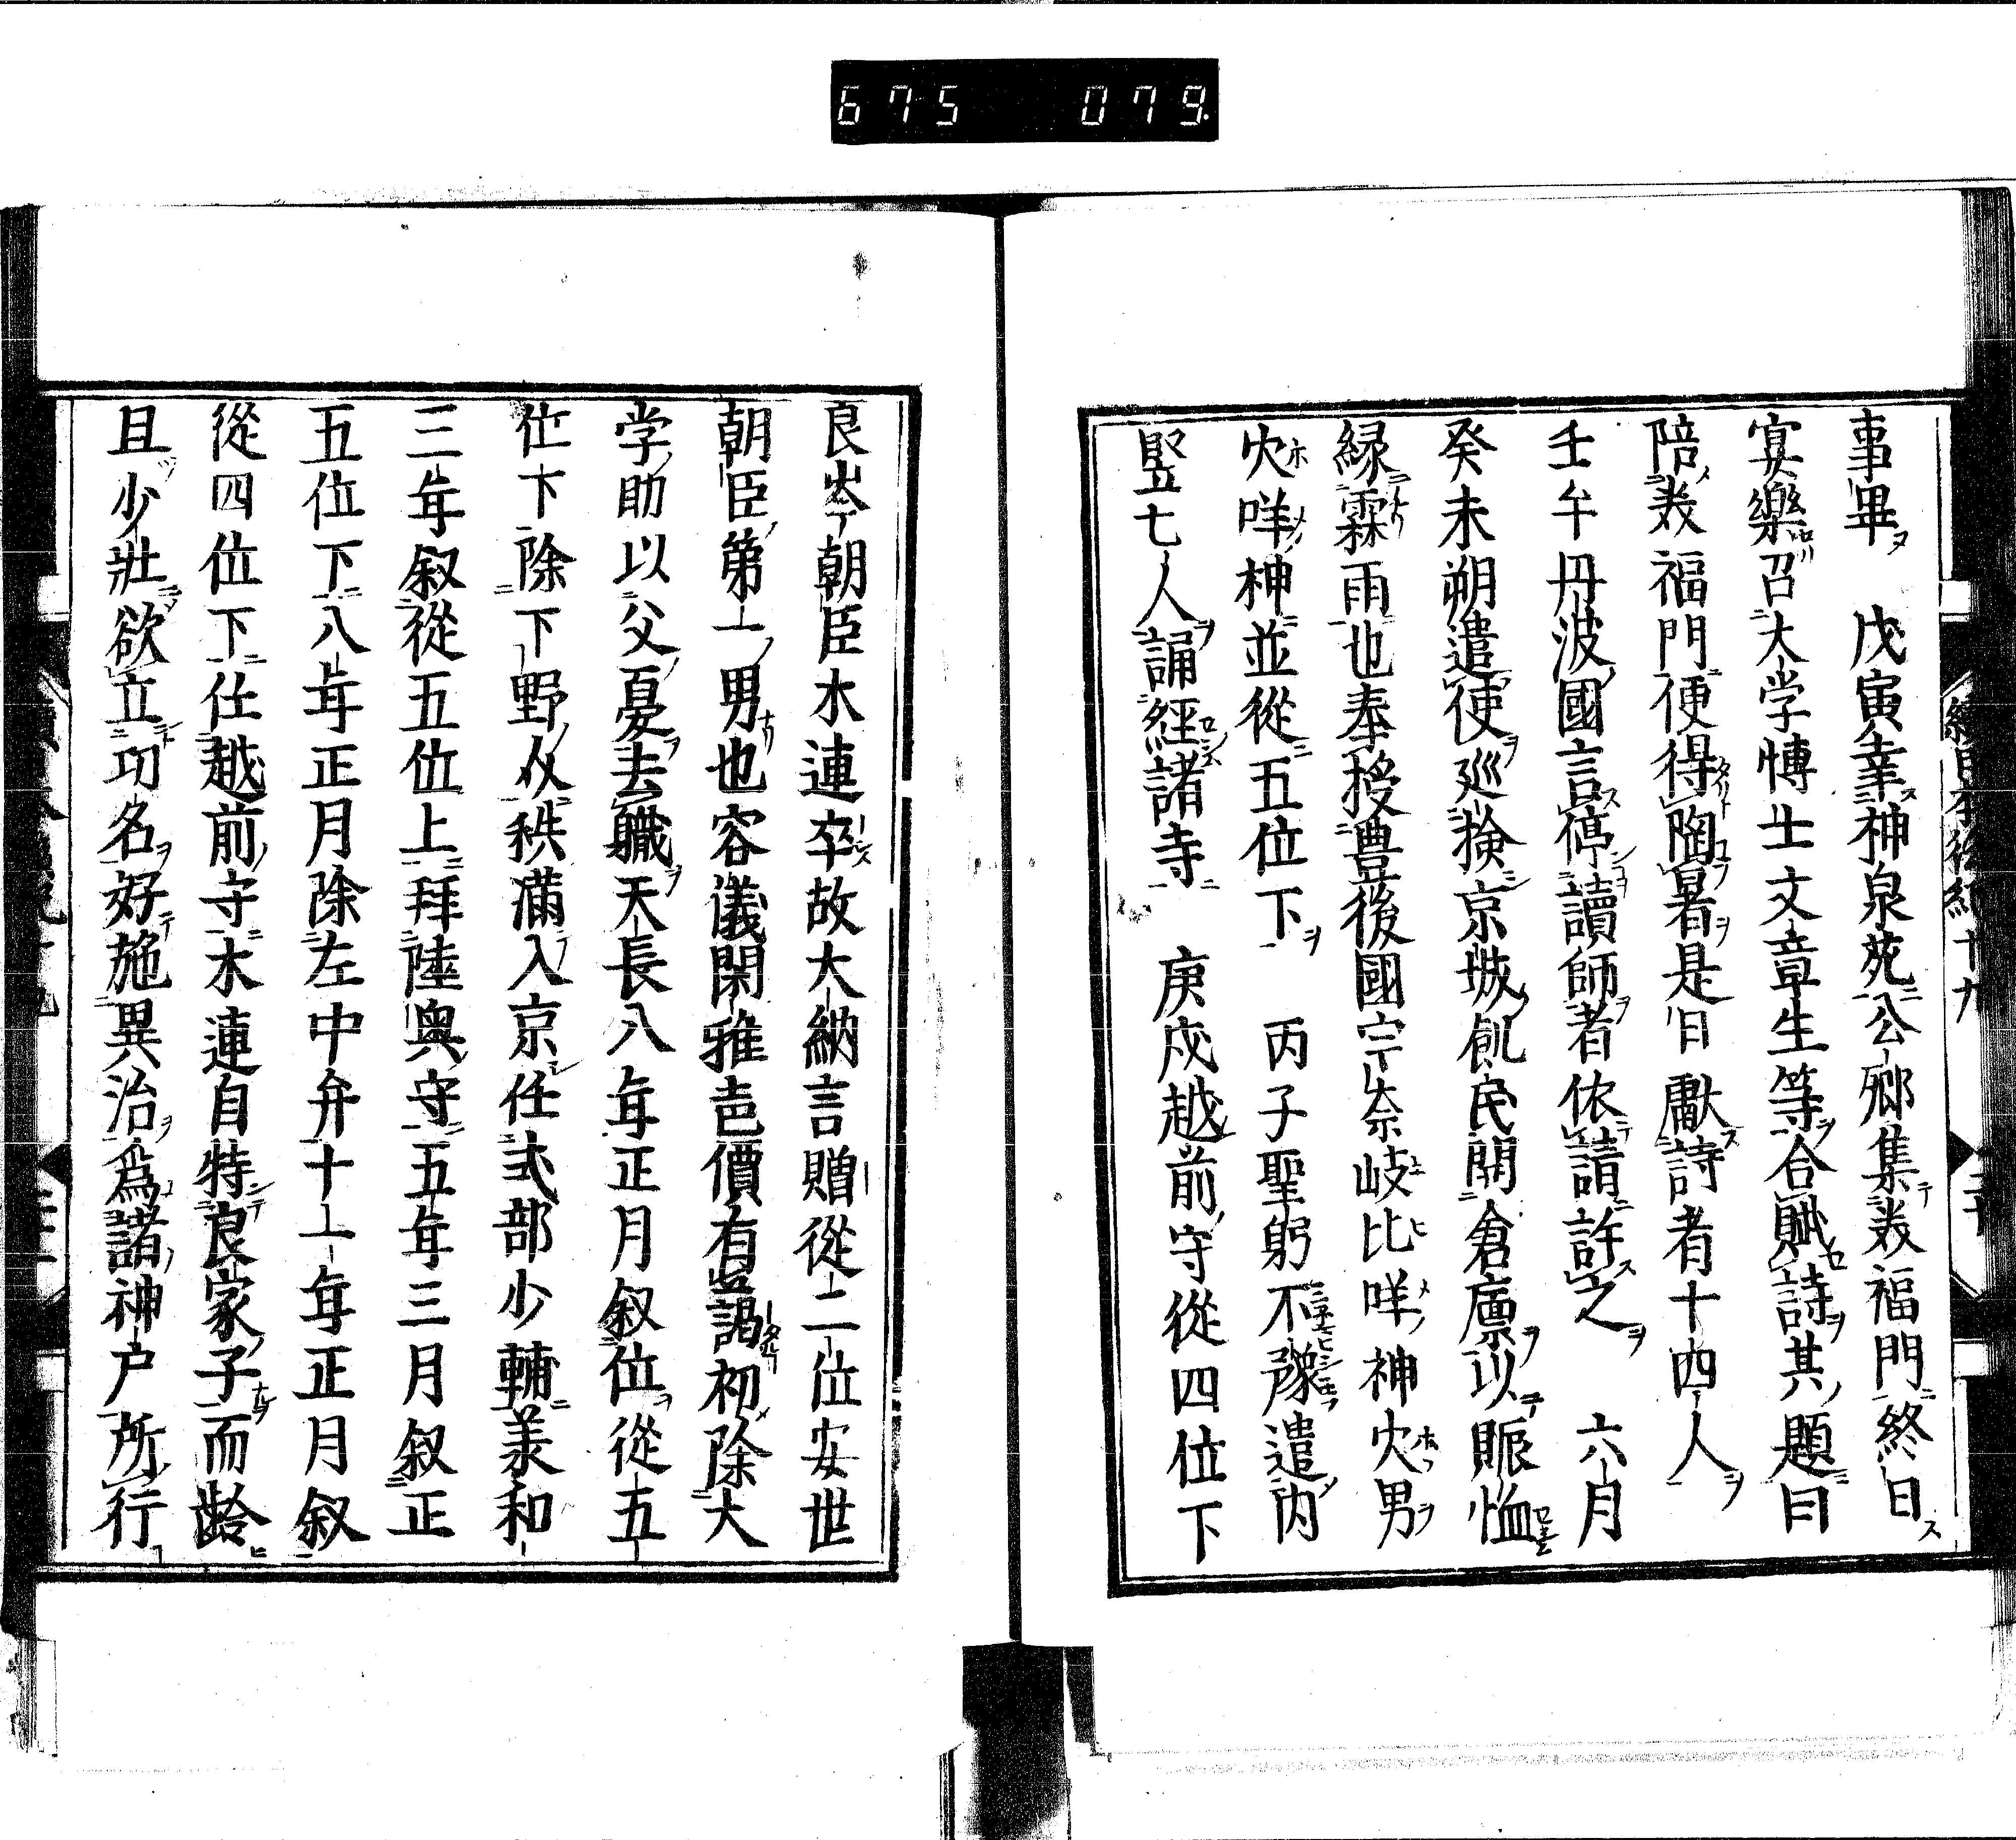 675 079
事畢 戊寅幸神泉苑公卿集羙福門終日
宴樂召大学博士文章生等合賦詩其題曰
陪羙福門便得陶暑是日獻詩者十四人 六月
壬午丹波國言停讀師者依請許之
癸未朔遣使巡撿京城飢民開倉廩以賑恤
縁霖雨也奉授豊後國宗奈岐比咩神火男
火咩神並從五位下 丙子聖躬不豫遣内
竪七人誦經諸寺 庚戌越前守從四位下
良岑朝臣木連卒故大納言贈從二位安世
朝臣第一男也容儀閑雅邑價有曷謁初除大
学助以父憂去職天長八年正月叙位從五
位下除下野介秩滿入京任式部少輔羙和
三年叙從五位上拜陸奥守五年三月叙正
五位下八年正月除左中弁十一年正月叙
從四位下任越前守木連自特良家子而齢
且少壯欲立功名好施異治爲諸神戸所行